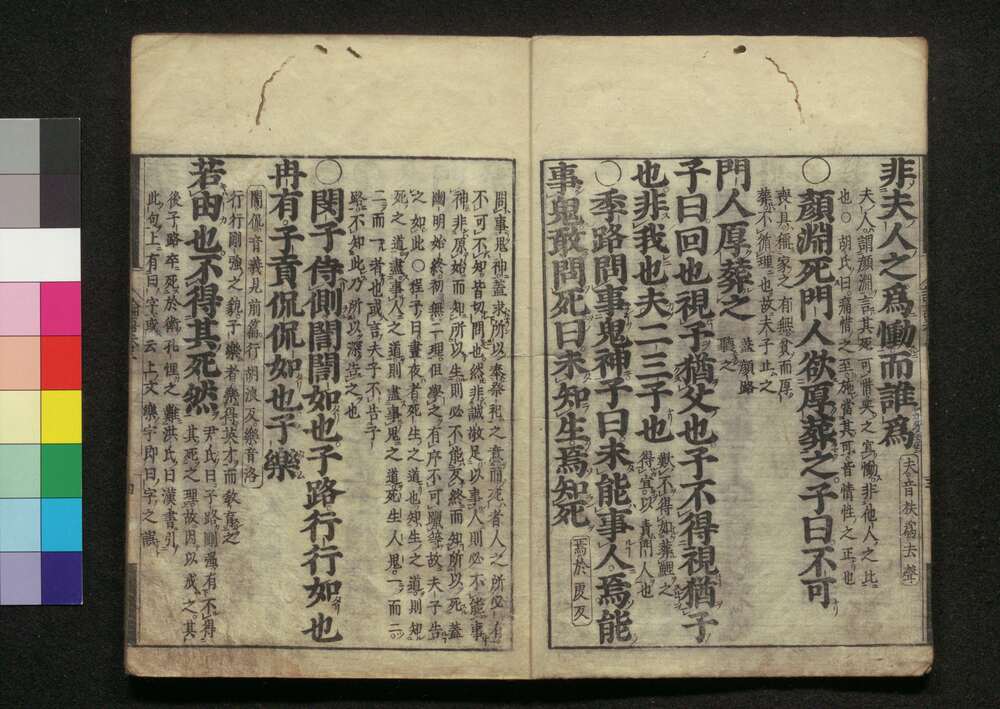 非夫人之爲慟而誰爲 夫音扶爲去聲
夫人謂顔淵言其死可惜哭之宜慟非他人之比
也○胡氏曰痛惜之至施當其可皆情性之正也
○顔淵死門人欲厚葬之子曰不可
喪具稱家之有無貧而厚
葬不循理也故夫子止之
門人厚葬之 蓋顔路
聽之
子曰回也視予猶父也予不得視猶子
也非我也夫二三子也 歎不得如葬鯉之
得宜以責門人也
○季路問事鬼神子曰未能事人焉能
事鬼敢問死曰未知生焉知死 焉於虔反
問事鬼神蓋求所以奉祭祀之意而死者人之所必有
不可不知皆切問也然非誠敬足以事人則必不能事
神非原始而知所以生則必不能反終而知所以死蓋
幽明始終初無二理但學之有序不可躐等故夫子告
之如此○程子曰晝夜者死生之道也知生之道則知
死之道盡事人之道則盡事鬼之道死生人鬼一而二
二而一者也或言夫子不告子
路不知此乃所以深告之也
○閔子侍側誾誾如也子路行行如也
冉有子貢侃侃如也子樂
誾侃音義見前篇行胡浪反樂音洛
行行剛強之貌子樂者樂得英才而敎育之
若由也不得其死然 尹氏曰子路剛强有不得
其死之理故因以戒之其
後子路卒死於衛孔悝之難洪氏曰漢書引
此句上有曰字或云上文樂字即曰字之誤